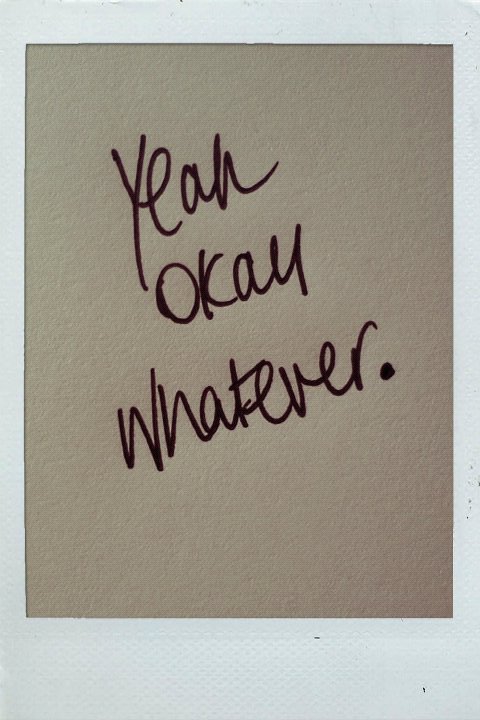 Yeah
okay
whatever.